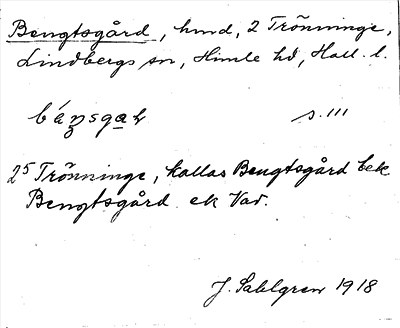 Bengtsgård, hmd, 2 Trönninge,
Lindbergs sn, Himle hd, Hall. l.
s. 111
2⁵ Trönninge, kallas Bengtsgård bek
Bengtsgård ek Var.
J. Sahlgren 1918